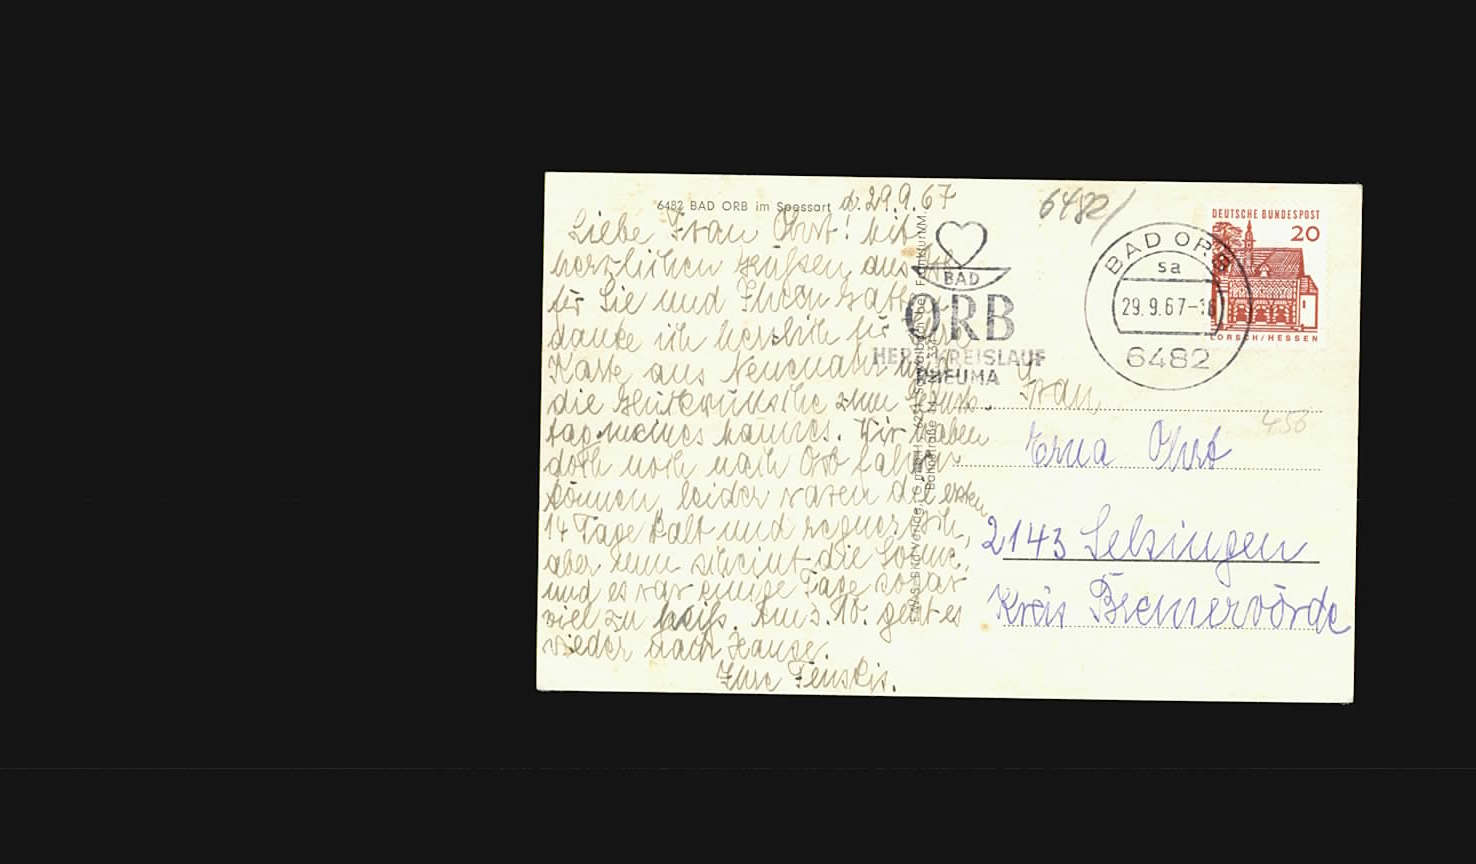 6482 BAD ORB im Spessart d. 29.9.67
Liebe Frau Ohrt! Mit
herzlichen Grüßen aus Orb
für Sie und Ihren Gatten
danke ich herzlich für Ihre
Karte aus Neuenahr und
die Glückwünsche zum Geburts-
tag meines Mannes. Wir haben
doch noch nach Orb fahren
können, leider waren die ersten
14 Tage kalt und regnerisch,
aber nun scheint die Sonne,
und es war einige Tage sogar
viel zu heiß. Am 3.10. geht es
wieder nach Hause.
Ihre
BAD
ORB
HERZ KREISLAUF
RHEUMA
6482/
BAD ORB
sa
29.9.67-16
6482
DEUTSCHE BUNDESPOST
20
LORSCH/HESSEN
Frau
450
Erna Ohrt
2143 Selsingen
Kreis Bremervörde